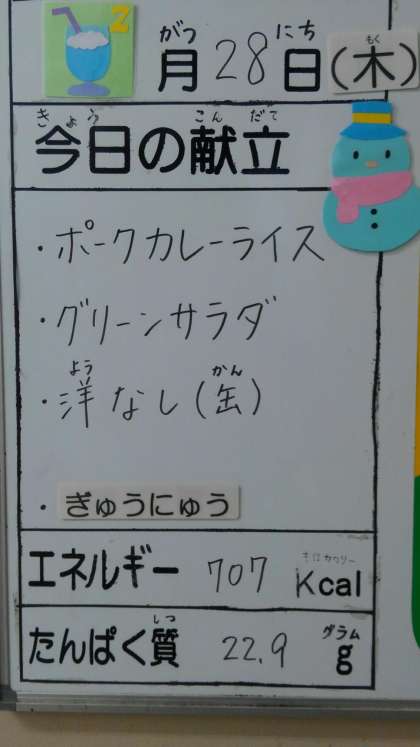 2
月28日(木)
がつ にち もく
今日の献立
きょう こん だて
・ポークカレーライス
・グリーンサラダ
・洋なし(缶)
よう かん
・ぎゅうにゅう
エネルギー 707 Kcal
キロカロリー
たんぱく質 22.9 g
しつ グラム